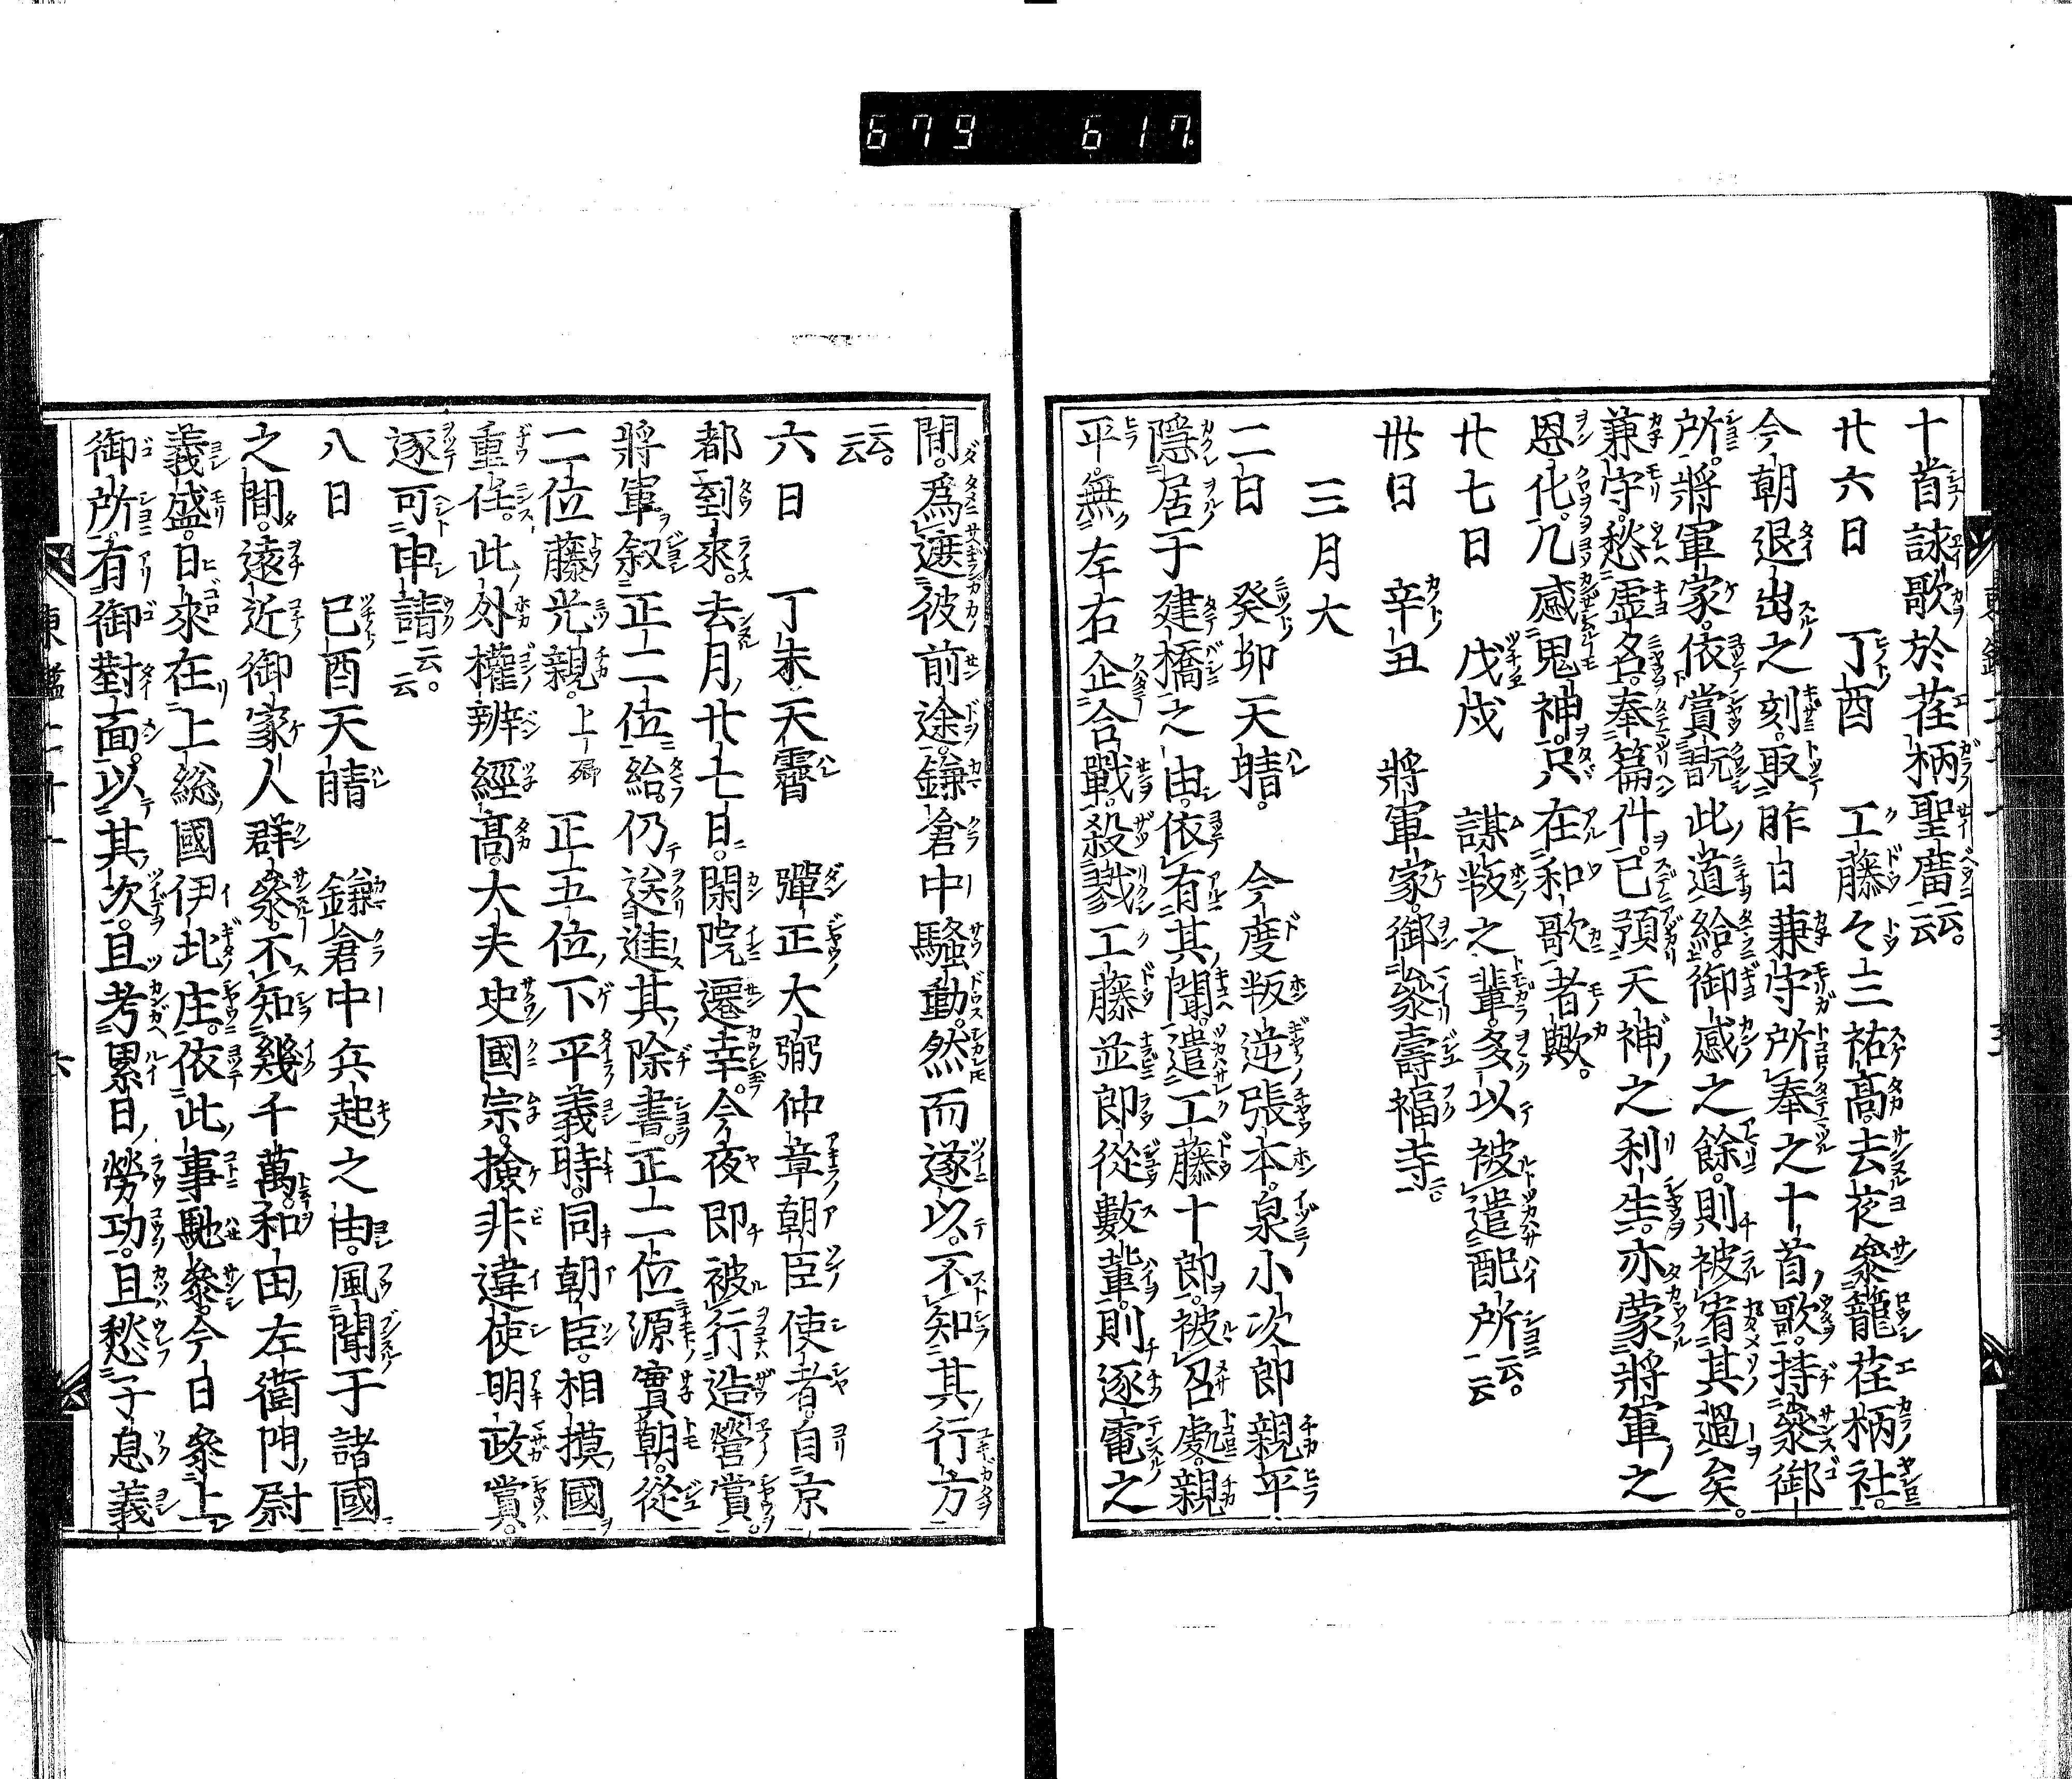 679 617
十首詠歌於荏柄聖廟云云。
廿六日 丁酉 工藤々三祐高。去夜參籠荏柄社。
今朝退出之刻。取昨日兼守所奉之十首歌。持參御
所。將軍家。依賞翫此道給。御感之餘。則被宥其過矣。
兼守。愁虛名。奉篇什。已預天神之利生。亦蒙將軍之
恩化。凡感鬼神。只在和歌者歟。
廿七日 戊戌 謀叛之輩。多以被遣配所云云。
卅日 辛丑 將軍家。御參壽福寺。
三月大
二日 癸卯天晴。今度叛逆張本。泉小次郎親平
隱居于建橋之由。依有其聞。遣工藤十郎。被召處。親
平。無左右企合戰。殺戮工藤並郎從數輩。則逐電之
間。爲遮彼前途。鎌倉中騷動。然而遂以。不知其行方
云云。
六日 丁未天霽 彈正大弼仲章朝臣使者。自京
都到來。去月廿七日。閑院遷幸。今夜即被行造營賞。
將軍叙正二位給。仍送進其除書。正二位源實朝。從
二位藤光親。上卿 正五位下平義時。同朝臣。相摸國
重任。此外權辨經高。大夫史國宗。撿非違使明政賞。
逐可申請云云。
八日 己酉天晴 鎌倉中兵起之由。風聞于諸國
之間。遠近御家人群參。不知幾千萬。和田左衛門尉
義盛。日來在上総國伊北庄。依此事馳參。今日參上
御所。有御對面。以其次。且考累日勞功。且愁子息義